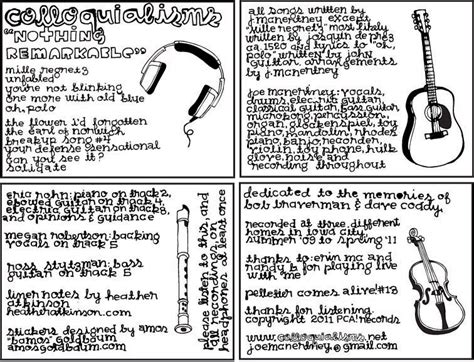 colloquialisms
"NOTHING
REMARKABLE"
mille regretz
unfabled
you're not blinking
one more with old blue
oh, polo
the flower i'd forgotten
the earl of norwich
breakup song #4
your defense is sensational
can you see it?
solidgate
all songs written by
j. mcnertney except
"mille regretz" most likely
written by josquin de prez
ca. 1520 and lyrics to "oh,
polo" written by john
guittar, arrangements by
j. mcnertney
joe mcnertney: vocals,
drums, electric guitar,
classical guitar, bass guitar
microkorg, percussion,
organ, glockenspiel, toy
piano, mandolin, rhodes
piano, banjo, recorder,
violin, toy phone, hulk
glove, noise and
recording throughout
eric hahn: piano on track 2,
ebowed guitar on track 4,
electric guitar on track 8,
and opinions & guidance
megan robertson: backing
vocals on track 5
ross stutzman: bass
guitar on track 5
liner notes by heather
atkinson
heathratkinson.com
stickers designed by amos
"bamos" goldbaum
amosgoldbaum.com
please listen to this, and
all recordings, on
headphones at least once
dedicated to the memories of
bob braverman and dave coddy.
recorded at three different
homes in iowa city
summer '09 to spring '11
thanks to: erin mc and
randy b for playing live
with me
pelletier comes alive! #13
thanks for listening.
copyright 2011 PCA! records
www.colloquialisms.net
joemcnertney@gmail.com